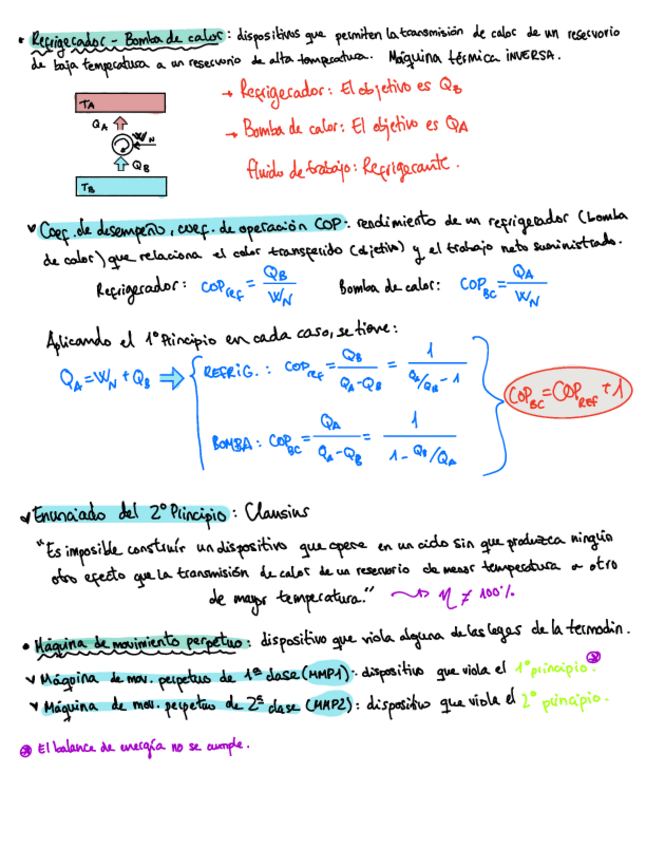 • Refrigerador - Bomba de calor: dispositivos que permiten la transmisión de calor de un reservorio
de baja temperatura a un reservorio de alta temperatura. Máquina térmica INVERSA.
TA
QA
WN
QB
TB
→ Refrigerador: El objetivo es QB
→ Bomba de calor: El objetivo es QA
Fluido de trabajo: Refrigerante.
Coef. de desempeño, coef. de operación COP: rendimiento de un refrigerador (bomba
de calor) que relaciona el calor transferido (objetivo) y el trabajo neto suministrado.
Refrigerador: COP_ref = QB / WN    Bomba de calor: COP_BC = QA / WN
Aplicando el 1º Principio en cada caso, se tiene:
QA = WN + QB ⇒
REFRIG.: COP_ref = QB / (QA - QB) = 1 / (QA/QB - 1)
BOMBA: COP_BC = QA / (QA - QB) = 1 / (1 - QB/QA)
COP_BC = COP_REF + 1
Enunciado del 2º Principio: Clausius
"Es imposible construir un dispositivo que opere en un ciclo sin que produzca ningún
otro efecto que la transmisión de calor de un reservorio de menor temperatura a otro
de mayor temperatura." → η ≠ 100%
• Máquina de movimiento perpetuo: dispositivo que viola alguna de las leyes de la termodin.
Máquina de mov. perpetuo de 1ª clase (MMP1): dispositivo que viola el 1º principio. ⊛
Máquina de mov. perpetuo de 2ª clase (MMP2): dispositivo que viola el 2º principio.
⊛ El balance de energía no se cumple.